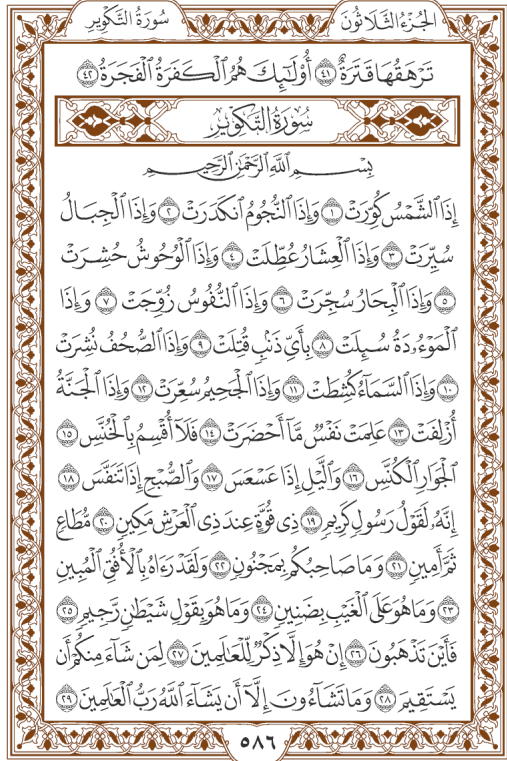 الجُزْءُ الثَّلَاثُونَ
سُورَةُ التَّكْوِيرِ
تَرْهَقُهَا قَتَرَةٌ ٤١ أُوْلَٰٓئِكَ هُمُ ٱلْكَفَرَةُ ٱلْفَجَرَةُ ٤٢
سُورَةُ التَّكْوِيرِ
بِسْمِ ٱللَّهِ ٱلرَّحْمَٰنِ ٱلرَّحِيمِ
إِذَا ٱلشَّمْسُ كُوِّرَتْ ١ وَإِذَا ٱلنُّجُومُ ٱنكَدَرَتْ ٢ وَإِذَا ٱلْجِبَالُ
سُيِّرَتْ ٣ وَإِذَا ٱلْعِشَارُ عُطِّلَتْ ٤ وَإِذَا ٱلْوُحُوشُ حُشِرَتْ
٥ وَإِذَا ٱلْبِحَارُ سُجِّرَتْ ٦ وَإِذَا ٱلنُّفُوسُ زُوِّجَتْ ٧ وَإِذَا
ٱلْمَوْءُۥدَةُ سُئِلَتْ ٨ بِأَيِّ ذَنۢبٍ قُتِلَتْ ٩ وَإِذَا ٱلصُّحُفُ نُشِرَتْ
١٠ وَإِذَا ٱلسَّمَآءُ كُشِطَتْ ١١ وَإِذَا ٱلْجَحِيمُ سُعِّرَتْ ١٢ وَإِذَا ٱلْجَنَّةُ
أُزْلِفَتْ ١٣ عَلِمَتْ نَفْسٌ مَّآ أَحْضَرَتْ ١٤ فَلَآ أُقْسِمُ بِٱلْخُنَّسِ ١٥
ٱلْجَوَارِ ٱلْكُنَّسِ ١٦ وَٱلَّيْلِ إِذَا عَسْعَسَ ١٧ وَٱلصُّبْحِ إِذَا تَنَفَّسَ ١٨
إِنَّهُۥ لَقَوْلُ رَسُولٍ كَرِيمٍ ١٩ ذِي قُوَّةٍ عِندَ ذِي ٱلْعَرْشِ مَكِينٍ ٢٠ مُّطَاعٍ
ثَمَّ أَمِينٍ ٢١ وَمَا صَاحِبُكُم بِمَجْنُونٍ ٢٢ وَلَقَدْ رَءَاهُ بِٱلْأُفُقِ ٱلْمُبِينِ
٢٣ وَمَا هُوَ عَلَى ٱلْغَيْبِ بِضَنِينٍ ٢٤ وَمَا هُوَ بِقَوْلِ شَيْطَٰنٍ رَّجِيمٍ ٢٥
فَأَيْنَ تَذْهَبُونَ ٢٦ إِنْ هُوَ إِلَّا ذِكْرٌ لِّلْعَٰلَمِينَ ٢٧ لِمَن شَآءَ مِنكُمْ أَن
يَسْتَقِيمَ ٢٨ وَمَا تَشَآءُونَ إِلَّآ أَن يَشَآءَ ٱللَّهُ رَبُّ ٱلْعَٰلَمِينَ ٢٩
٥٨٦